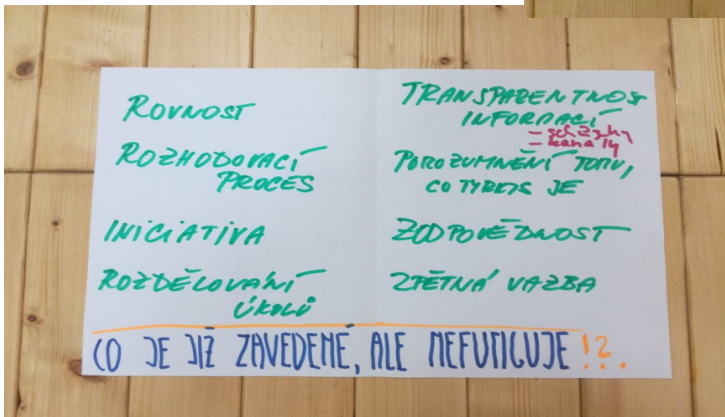 ROVNOST
ROZHODOVACÍ
PROCES
INICIATIVA
ROZDĚLOVANÍ
ÚKOLŮ
TRANSPARENTNOST
INFORMACÍ
- schůzky
- kanály
POROZUMNĚNÍ TOMU,
CO TYRKYS JE
ZODPOVĚDNOST
ZPĚTNÁ VAZBA
CO JE JIŽ ZAVEDENÉ, ALE NEFUNGUJE!?